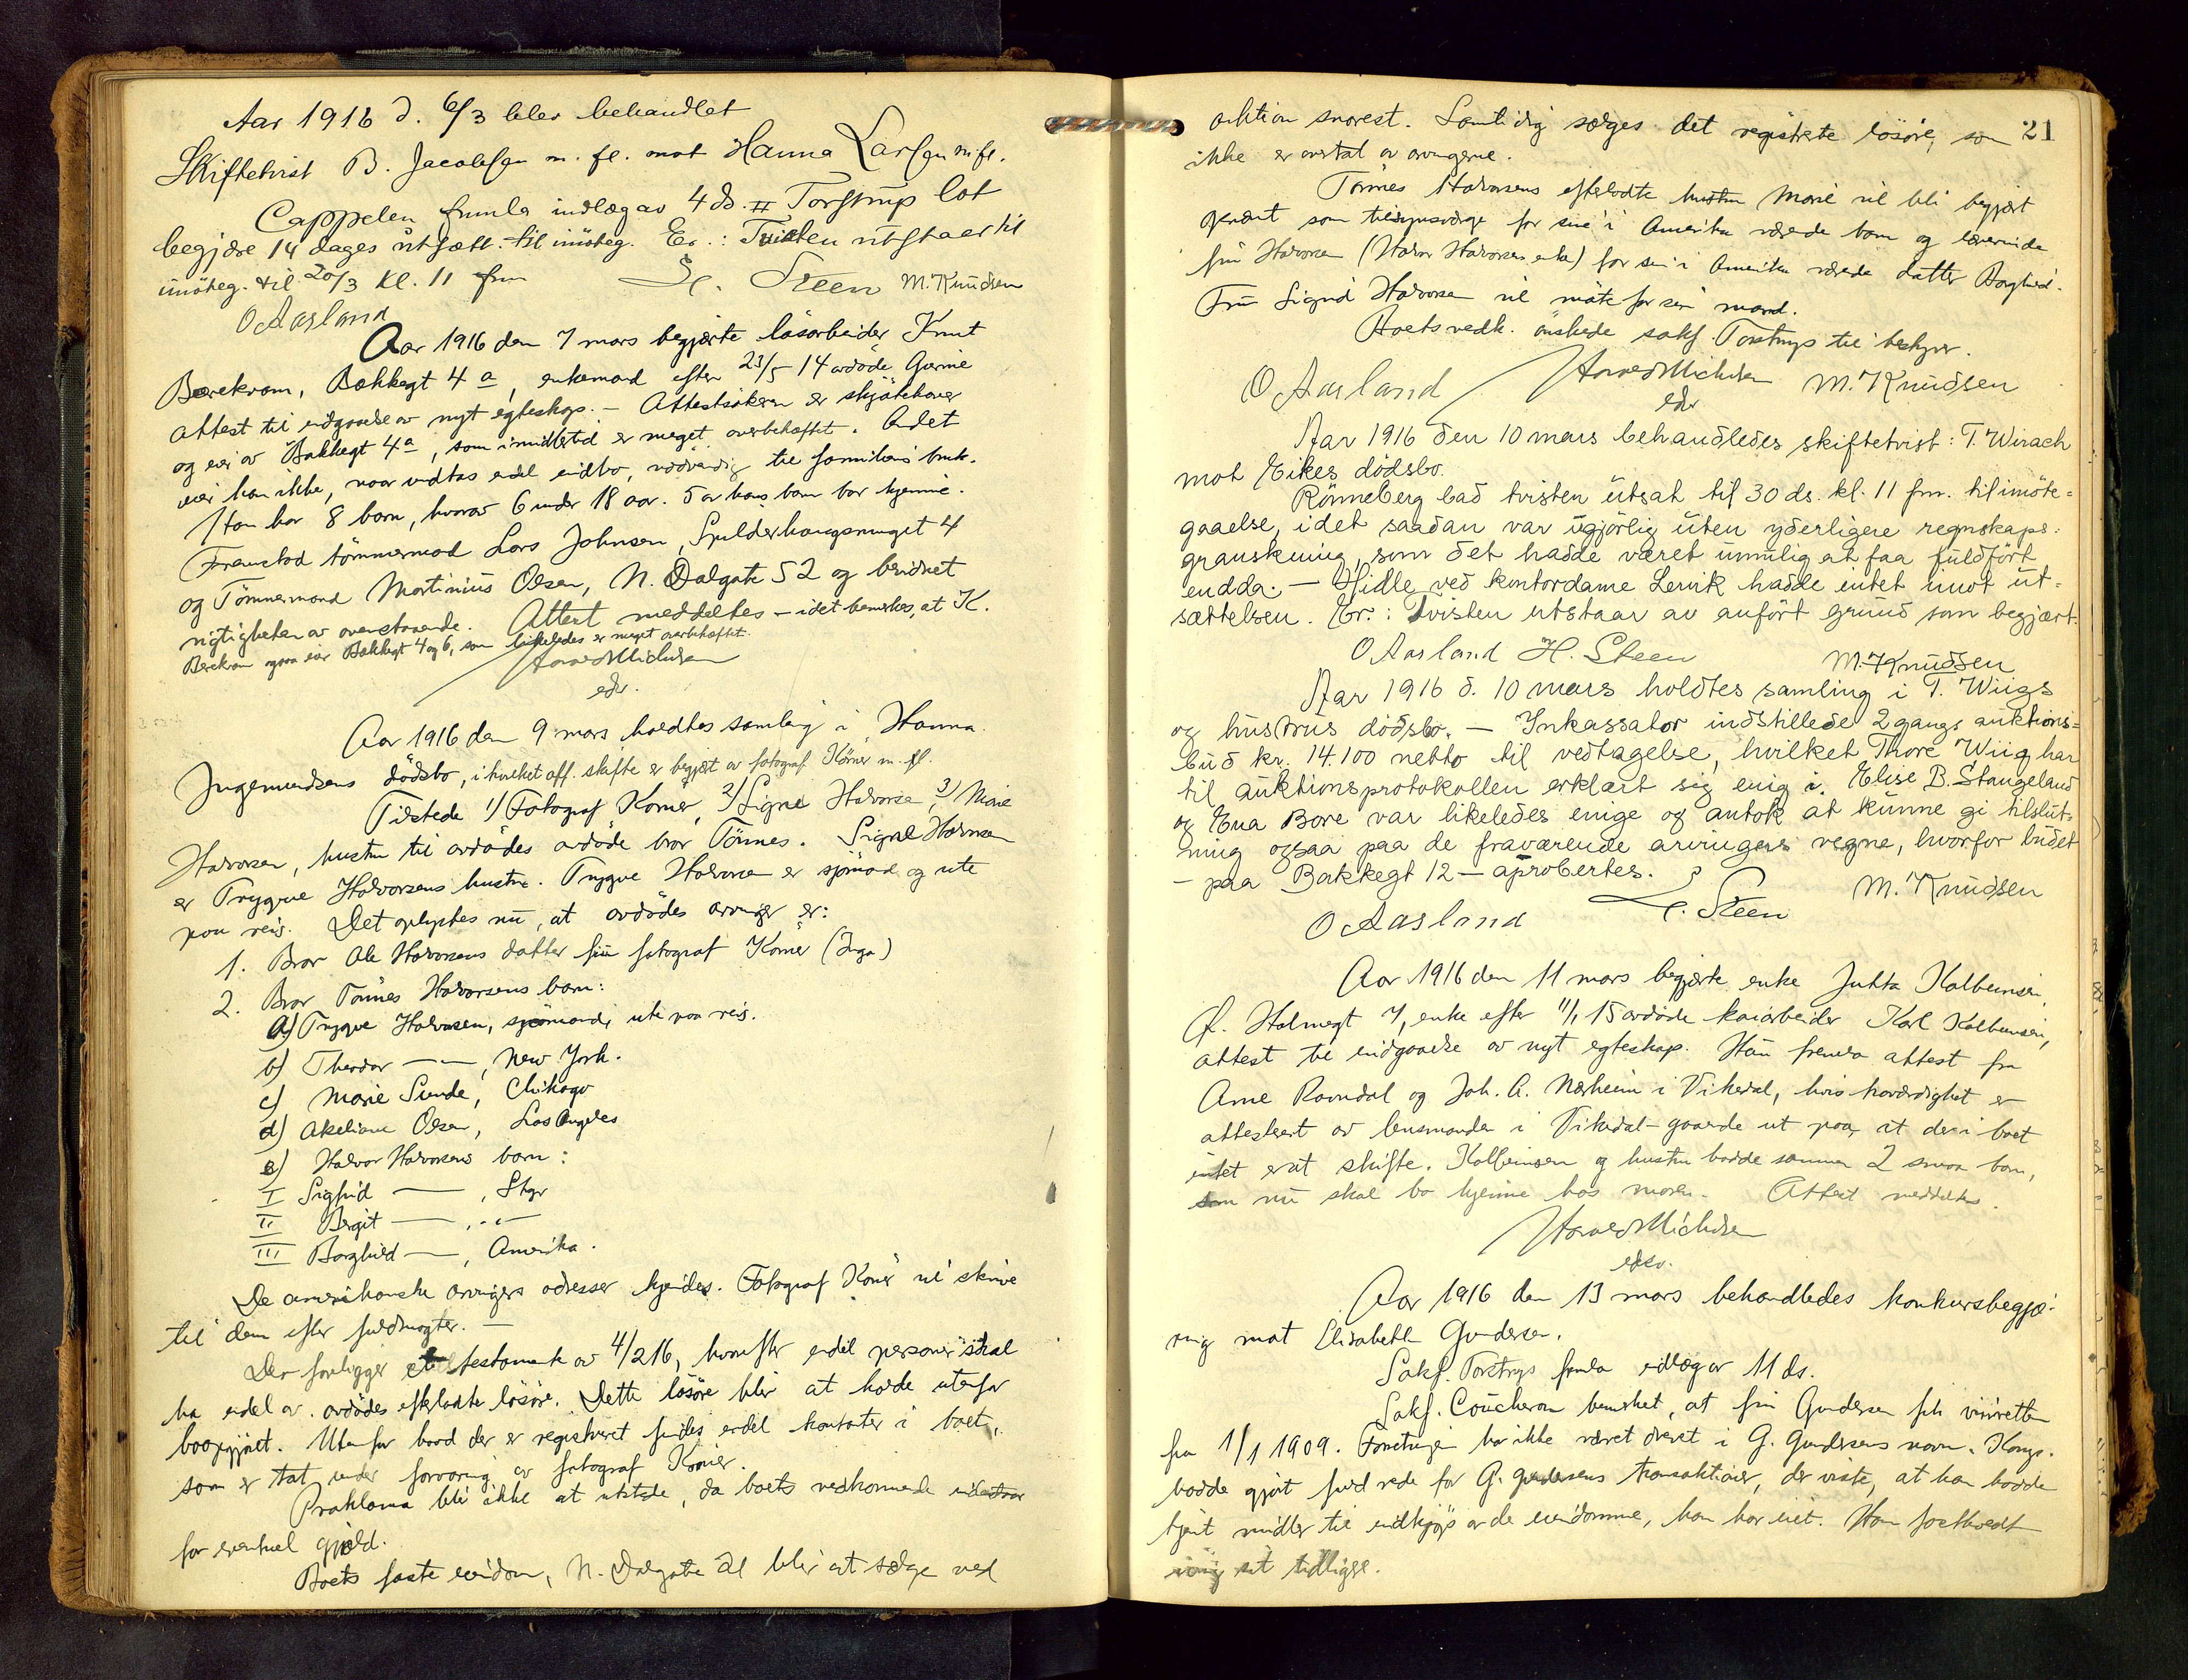 Aar 1916 d. 6/3 blev behandlet
Skiftetvist B. Jacobsen m. fl. mot Hanna Larsen m. fl.
Cappelen fremla indlæg av 4 ds. Torstrup lot
begjære 14 dages utsætt. til imøteg. Er.: Tvisten utstaar til
imøteg. til 20/3 kl. 11 fm
H. Steen M. Knudsen
O Aasland
Aar 1916 den 7 mars begjærte løsarbeider Knut
Berekvam, Bakkegt 4 a, enkemand efter 23/5 14 avdøde Gurine
attest til indgaaelse av nyt egteskap. – Attestsøkeren er skjøtehaver
og eier av Bakkegt 4 a, som imidlertid er meget overbehæftet. Andet
eier han ikke, naar undtas endel indbo, nødvendig til familiens bruk.
Han har 8 barn, hvorav 6 under 18 aar. 5 av hans barn bor hjemme.
Fremstod tømmermand Lars Johnsen, Spilderhaugsmuget 4
og Tømmermand Martinius Olsen, N. Dalgate 52 og bevidnet
rigtigheten av ovenstaaende. Attest meddeltes – idet bemerkes, at K.
Berekvam ogsaa eier Bakkegt 4 og 6, som likeledes er meget overbehæftet.
Harald Michelsen
edsv.
Aar 1916 den 9 mars holdtes samling i Hanna
Ingemundsens dødsbo, i hvilket off. skifte er begjært av fotograf Körner m. fl.
Tilstede 1/ Fotograf Körner, 2/ Signe Halvorsen, 3/ Marie
Halvorsen, hustru til avdødes avdøde bror Tønnes. Signe Halvorsen
er Trygve Halvorsens hustru. Trygve Halvorsen er sjømand og ute
paa reis. Det oplystes nu, at avdødes arvinger er:
1. Bror Ole Halvorsens datter fru fotograf Körner (Inga)
2. Bror Tønnes Halvorsens barn:
a) Trygve Halvorsen, sjømand, ute paa reis.
b) Theodor —"—, New York.
c) Marie Sunde, Chikago
d) Akeliane Olsen, Los Angeles
e) Halvor Halvorsens barn:
I Sigfrid —, Stgr
II Bergit —, -"-
III Borghild —, Amerika.
De amerikanske arvingers adresser kjendes. Fotograf Körner vil skrive
til dem efter fuldmagter. —
Der foreligger et testamente av 4/2 16, hvorefter endel personer skal
ha endel av avdødes efterladte løsøre. Dette løsøre blir at holde utenfor
boopgjøret. Utenfor hvad der er registreret findes endel kontanter i boet,
som er tat under forvaring av fotograf Körner.
Proklama blir ikke at utstede, da boets vedkommende indestaar
for eventuel gjæld.
Boets faste eiendom, N. Dalgate 21 blir at sælge ved
21
auktion snarest. Samtidig sælges det registrerte løsøre, som
ikke er overtat av arvingerne.
Tønnes Halvorsens efterladte hustru Marie vil bli begjært
opnævnt som tilsynsværge for sine i Amerika værende barn og lærerinde
fru Halvorsen (Halvor Halvorsens enke) for sin i Amerika værende datter Borghild.
Fru Signe Halvorsen vil møte for sin mand.
Boets vedk. ønskede sakf. Torstrup til bestyrer.
O Aasland Harald Michelsen M. Knudsen
edsv
Aar 1916 den 10 mars behandledes skiftetvist: T. Wirach
mot Eikes dødsbo.
Rönneberg bad tvisten utsat til 30 ds. kl. 11 fm. til imøte=
gaaelse, idet saadan var ugjørlig uten yderligere regnskaps=
granskning, som det hadde været umulig at faa fuldført
endda. – Hidle ved kontordame Lervik hadde intet imot ut=
sættelsen. Er.: Tvisten utstaar av anført grund som begjært.
O Aasland H. Steen M. Knudsen
Aar 1916 d. 10 mars holdtes samling i T. Wiigs
og hustrus dødsbo. – Inkassator indstillede 2 gangs auktions=
bud kr. 14.100 netto til vedtagelse, hvilket Thore Wiig har
til auktionsprotokollen erklært sig enig i. Elise B. Stangeland
og Ena Bore var likeledes enige og antok at kunne gi tilslut=
ning ogsaa paa de fraværende arvingers vegne, hvorfor budet
– paa Bakkegt 12 – aprobertes.
O Aasland H. Steen M. Knudsen
Aar 1916 den 11 mars begjærte enke Jutta Kolbeinsen,
Ø. Holmegt 7, enke efter 11/1 15 avdøde kaiarbeider Karl Kolbeinsen,
attest til indgaaelse av nyt egteskap. Hun fremla attest fra
Arne Ravndal og Joh. A. Nærheim i Vikedal, hvis troværdighet er
attestert av lensmanden i Vikedal – gaaende ut paa, at der i boet
intet er at skifte. Kolbeinsen og hustru hadde sammen 2 smaa barn,
som nu skal bo hjemme hos moren. Attest meddeltes.
Harald Michelsen
edsv.
Aar 1916 den 13 mars behandledes konkursbegjæ-
ring mot Elisabeth Gundersen.
Sakf. Torstrup fremla indlæg av 11 ds.
Sakf. Coucheron bemerket, at fru Gundersen fik vinretten
fra 1/1 1909. Forretningen har ikke været drevet i G. Gundersens navn. Komp.
hadde gjort fuld rede for G. Gundersens transaktioner, der viste, at han hadde
tjent midler til indkjøp av de eiendomme, han har eiet. Han fastholdt
sit tidligere.